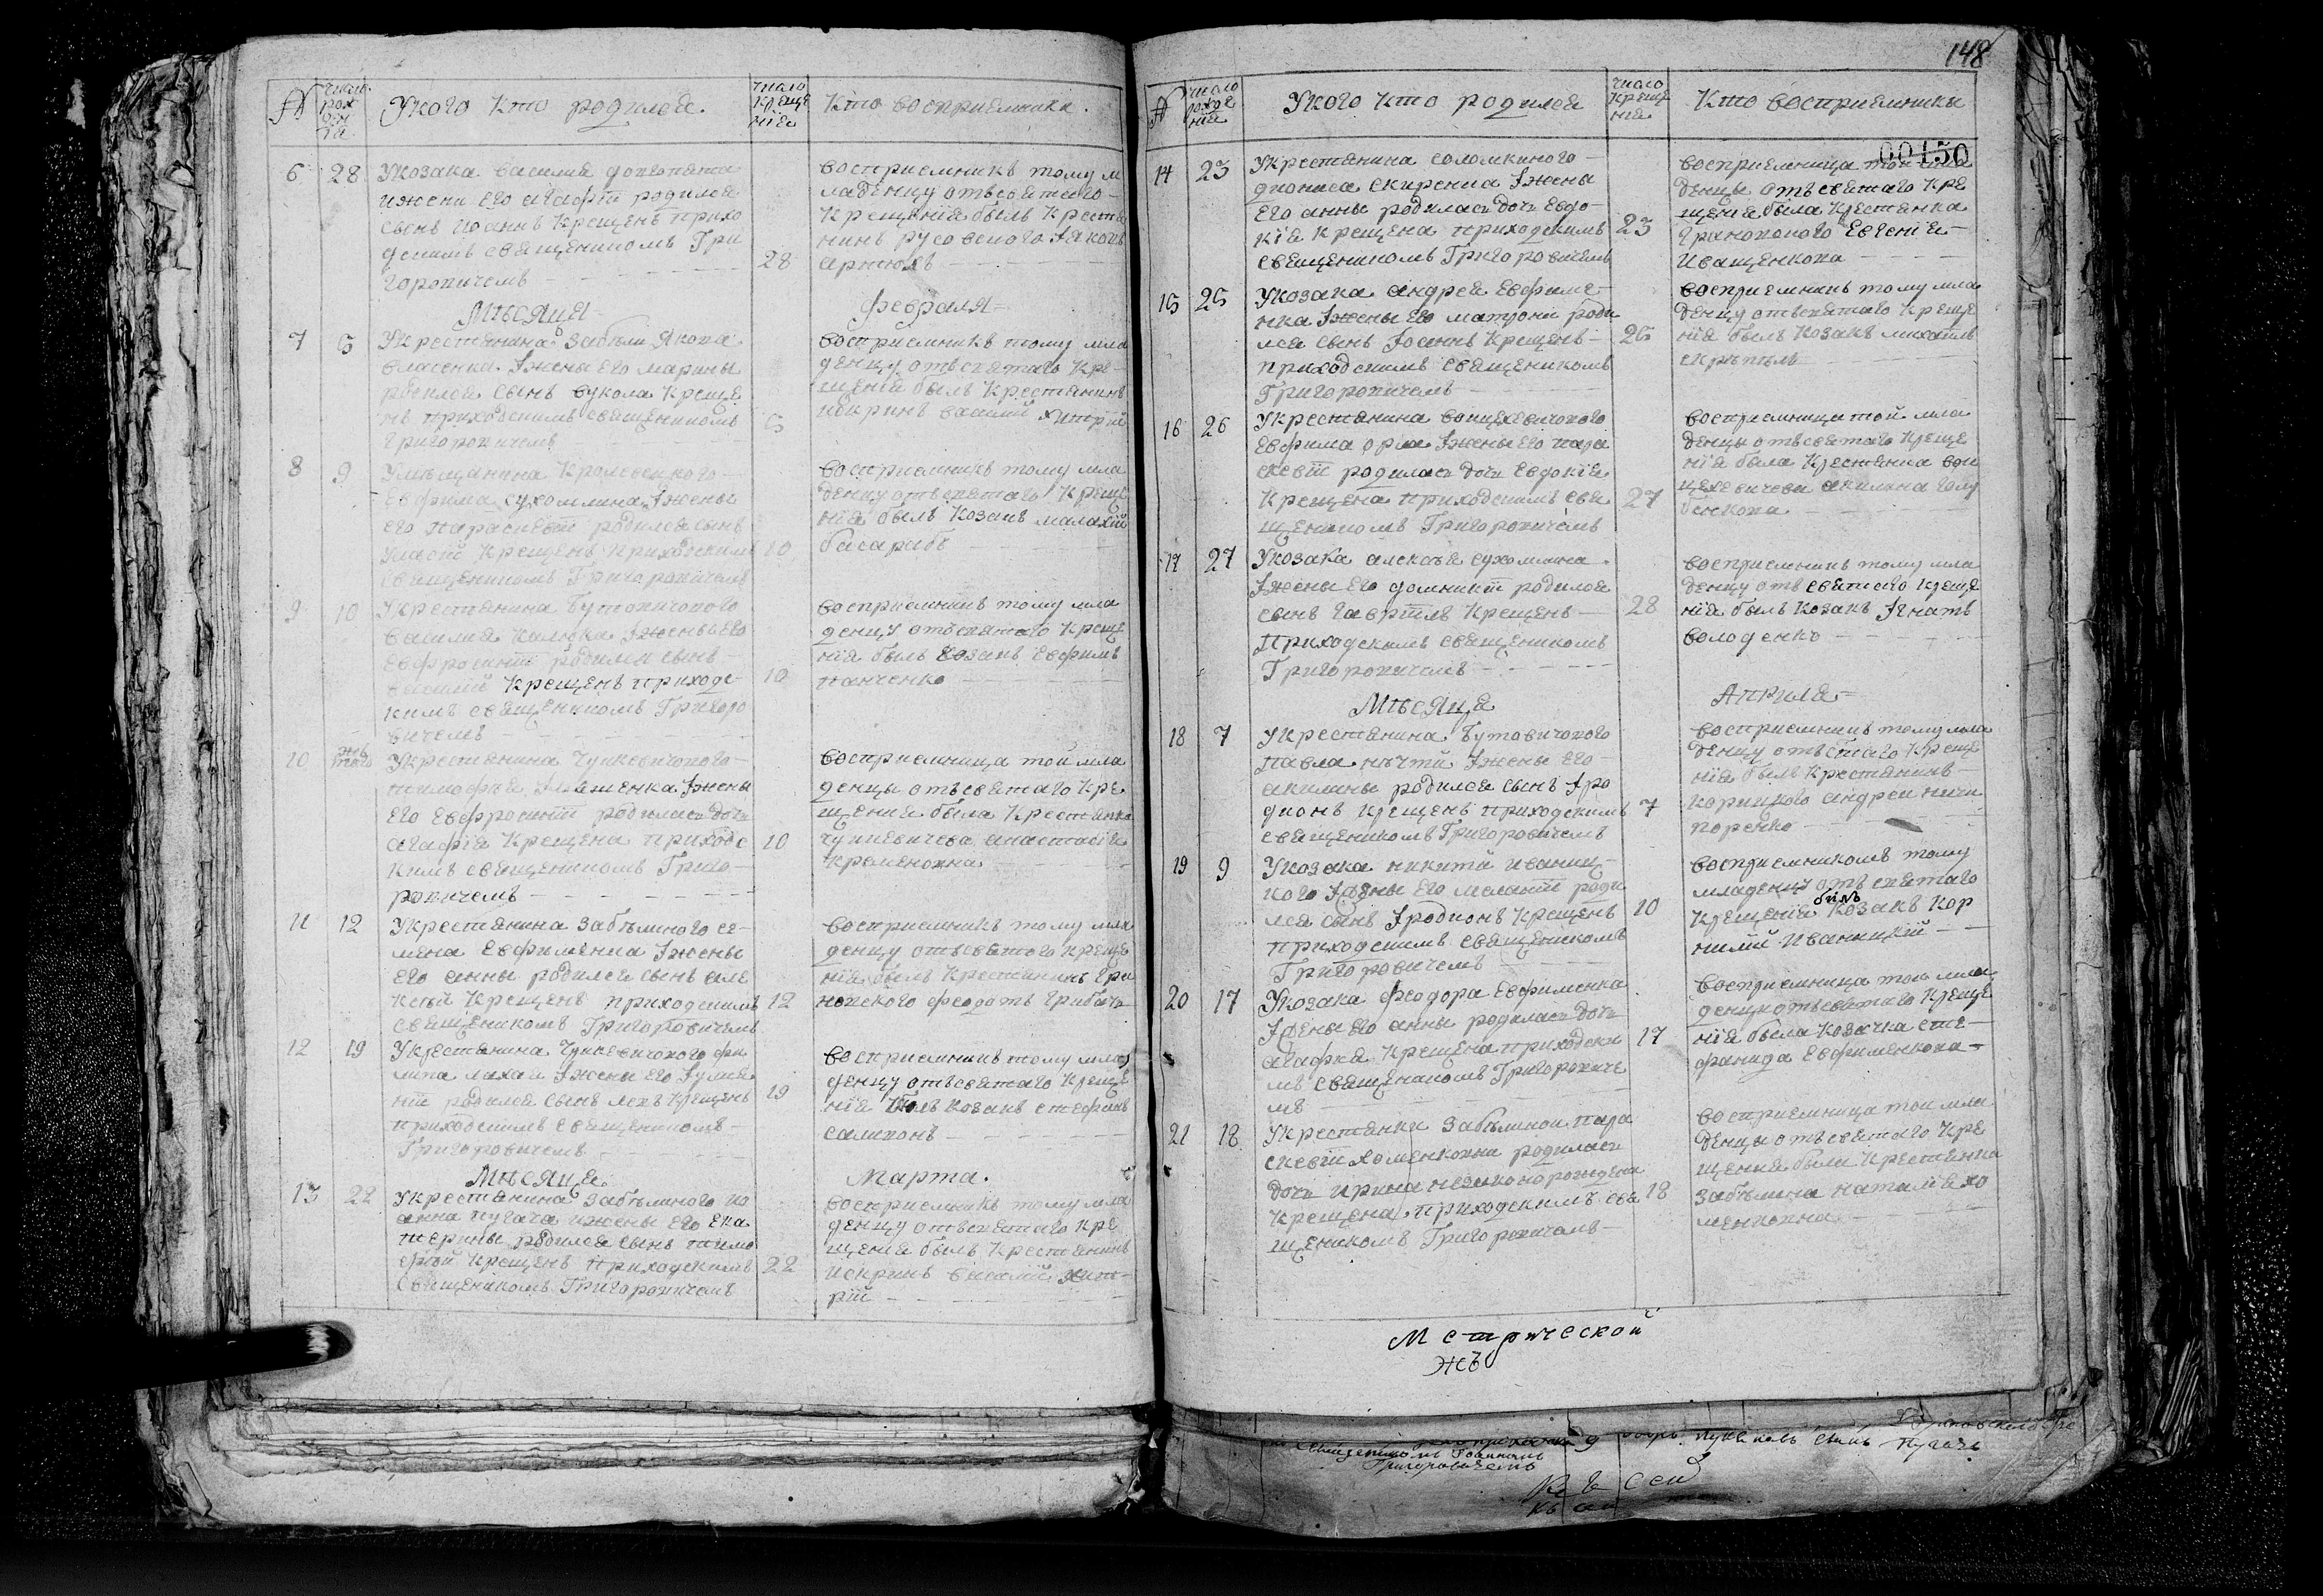 №
число
рож
ден
їа
Укого кто родилса.
число
креще
нїа
Кто восприемники.
6
28
Укозака василиа
ижени его агафїи родилса
сынъ иоаннъ крещенъ прихо
дскимъ священникомъ Гри
горовичемъ
28
восприемникъ тому м
ладенцу отъ святого
крещенїя былъ крестя
нинъ русовского Іаковъ
Мѣсяца
Февраля
7
5
Укрестянина забѣли Якова
власенка Іжены его марины
родился сынъ вукола креще
нъ приходскимъ священникомъ
Григоровичемъ
5
восприемникъ тому мла
денцу отъ святаго кре
щенїя былъ крестянинъ
искринъ василїй хитрїй
8
9
Умѣщанина кролевецкого
Евфима сухомлина Іжены
его параскевїи родился сынъ
власїй крещенъ приходскимъ
священникомъ Григоровичемъ
10
восприемникъ тому мла
денцу отъ святаго креще
нїя былъ козакъ малахїй
басарабъ
9
10
Укрестянина Бутовичового
василия калюка Іжены его
Евфросинїи родился сынъ
василїй крещенъ приходс
кимъ священникомъ Григоро
вичемъ
10
восприемникъ тому мла
денцу отъ святаго креще
нїя былъ козакъ Евфимъ
панченко
10
тогожъ
Укрестянина Чуйкевичового
тимофѣя Іжены
его Евфросинїи родилася дочь
агафїя крещена приходс
кимъ священникомъ Григо
ровичемъ
10
восприемница той мла
денцы отъ святаго кре
щения была крестянка
чуйкевичева анастасїя
кременовна
11
12
Укрестянина забѣлиного се
мена Евфименка Іжены
его анны родился сынъ але
ксѣй крещенъ приходскимъ
священникомъ Григоровичемъ
12
восприемникъ тому мла
денцу отъ святого креще
нїя былъ крестянинъ гри
новского феодотъ грибачъ
12
19
Укрестянина Чуйкевичового фи
липа Іжены его Іулия
нїи родился сынъ левъ крещенъ
приходскимъ священникомъ
Григоровичемъ
19
восприемникъ тому мла
денцу отъ святаго креще
нїя былъ козакъ стефанъ
самсонъ
Мѣсяца
Марта.
13
22
Укрестянина забѣлиного ио
анна пугача ижены его ека
терины родился сынъ тимо
фѣй крещенъ приходскимъ
священникомъ Григоровичемъ
22
восприемникъ тому мла
денцу отъ святаго кре
щения былъ крестянинъ
искринъ василїй хит
рїй
148
00150
№
число
рожде
нїя
Укого кто родился
число
креще
нїя
Кто восприемники
14
23
Укрестянина соломкиного
диониса скиренка Іжены
его анны родилась дочь Евдо
кїя крещена приходскимъ
священникомъ Григоровичемъ
23
восприемница той мла
денцы отъ святаго кре
щения была крестянка
гриновского Евгенїя
Иващенкова
15
25
Укозака андрея Евфиме
нка Іжены его матроны роди
лся сынъ Іоаннъ крещенъ
приходскимъ священикомъ
Григоровичемъ
26
восприемникъ тому мла
денцу отъ святаго креще
нїя былъ козакъ михаилъ
16
26
Укрестянина воицеховичового
Евфима орла Іжены его пара
скевїи родилась дочь Евдокїя
крещена приходскимъ свя
щеникомъ Григоровичемъ
27
восприемница той мла
денцы отъ святаго креще
нїя была крестянка вои
цеховичева акилина голу
бенкова
17
27
Укозака алексѣя сухомлина
Іжены его домникїи родился
сынъ гаврїилъ крещенъ
приходскимъ священикомъ
Григоровичемъ
28
восприемникъ тому мла
денцу отъ святаго креще
нїя былъ козакъ Ігнатъ
володенко
Мѣсяца
Априля
18
7
Укрестянина Бутовичового
павла Іжены его
акилины родился сынъ Іро
дионъ крещенъ приходскимъ
священикомъ Григоровичемъ
7
восприемникъ тому мла
денцу отъ свтаго креще
нїя былъ крестянинъ
корицкого андрей ничи
поренко
19
9
Укозака никити иваниц
кого Іжены его меланїи роди
лся сынъ Іродионъ крещенъ
приходскимъ священикомъ
Григоровичемъ
10
восприемникомъ тому
младенцу отъ святаго
крещенїя былъ козакъ кор
нилїй иваницкїй
20
17
Укозака феодора Евфименка
Іжены его анны родилась дочь
агафия крещена приходски
мъ священикомъ Григоровиче
мъ
17
восприемница той мла
денцы отъ святаго креще
нїя была козачка сте
фанида Евфименкова
21
18
Укрестянки забѣлиной пара
скевїи хоменковни родилась
дочь ирина незаконорождена
крещена приходскимъ свя
щеникомъ Григоровичемъ
18
восприемница той мла
денцы отъ святаго кре
щения была крестянка
забѣлина наталїя хо
менковна
Метрической
жъ
священникомъ Іоанномъ
Григоровичемъ
сынъ Пугачъ